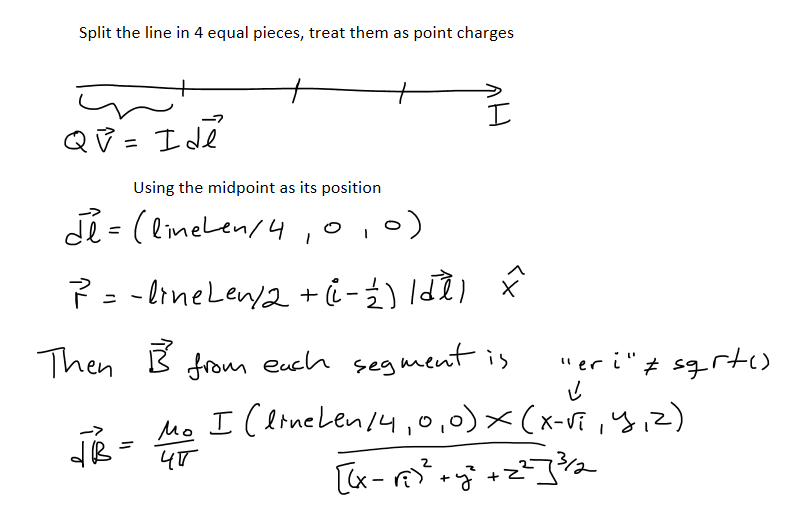 Split the line in 4 equal pieces, treat them as point charges
I
Q V⃗ = I dl⃗
Using the midpoint as its position
dl⃗ = (lineLen/4 , 0 , 0)
r⃗ = -lineLen/2 + (i - 1/2) |dl⃗| x̂
Then B⃗ from each segment is "er i" ≠ sqrt()
dB⃗ = μ₀/4π I (lineLen/4, 0, 0) × (x-ri, y, z)
[(x-ri)² + y² + z²]^3/2